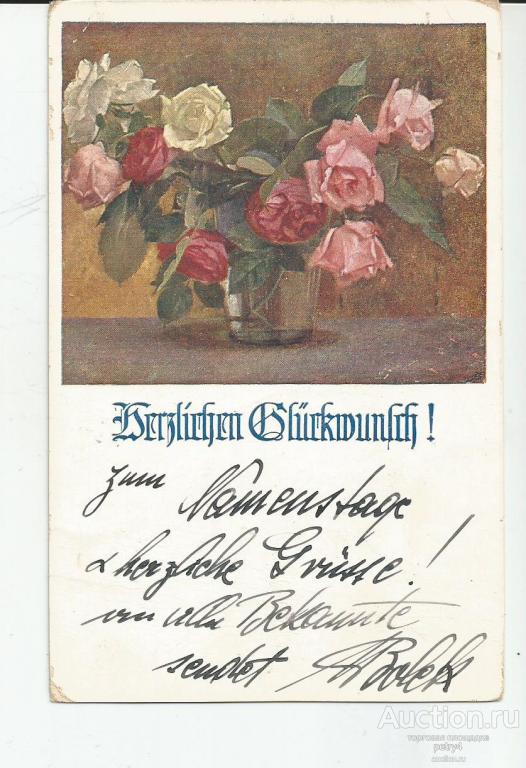 Herzlichen Glückwunsch!
zum Namenstage
& herzliche Grüsse!
an alle Bekannte
sendet
Auction.ru
торговая площадка
petry4
auction.ru